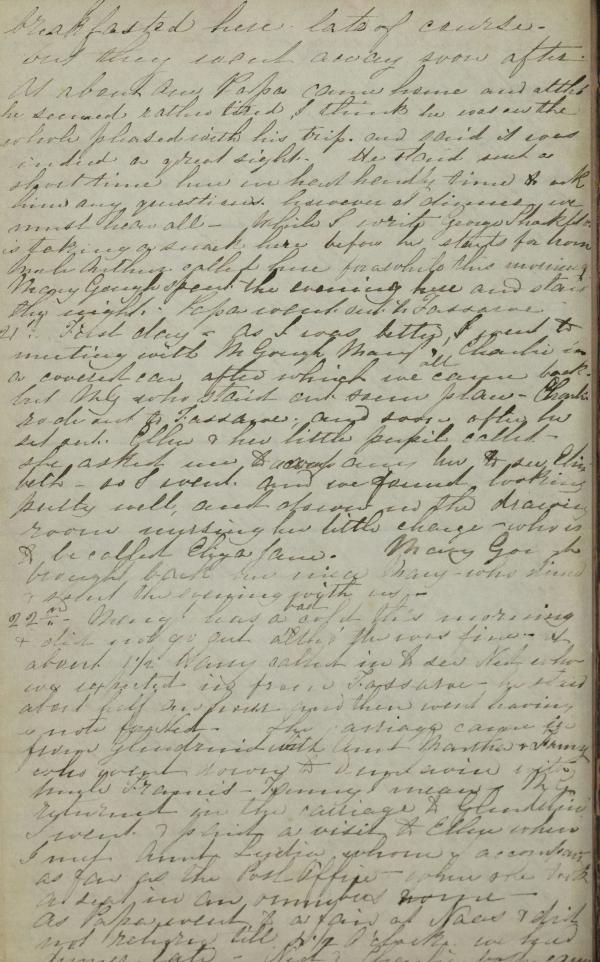 breakfasted here late of course -
but they went away soon after.
At about one Papa came home and altho'
he seemed rather tired, I think he was on the
whole pleased with his trip. and said it was
indeed a great sight. He staid such a
short time here we had hardly time to ask
him any questions. however I suppose we
must hear all - While I write George Shackleton
is taking a snack here before he starts for home
Arthur called here for awhile this morning
Mary Gough spent the evening here and staid
the night. Papa went out to Fassaroe
21st. First day - as I was better, I went to
meeting with M Gough Mary Charlie in
a covered car after which we all came back -
but My who staid out some place - Charlie
rode out to Fassaroe. and soon after he
set out. Ellen & her little pupil called -
she asked me to accompany her to see Eliza
beth - so I went. and we found looking
pretty well, and down in the drawing
room nursing her little charge - who is
to be called Eliza Jane. Mary Gough
brought back her niece Mary - who dined
& spent the evening with us. -
22nd - Mary has a bad cold this morning
& did not go out altho' she was fine - At
about 1 1/2 Harry called in to see Ned who
we expected in from Fassaroe - he staid
about half an hour and then went leaving
a note for Ned - The carriage came in
from Glendruid with Aunt Martha & Fanny
who went down to with
Uncle Francis - Fanny I mean - My
returned in the carriage to Glendruid
I went & paid a visit to Ellen where
I met Aunt Lydia whom I accompanied
as far as the Post Office - where she took
a seat in an omnibus home -
As Papa went to a fair at Naas & did
not return till O'clock we had
dinner late -